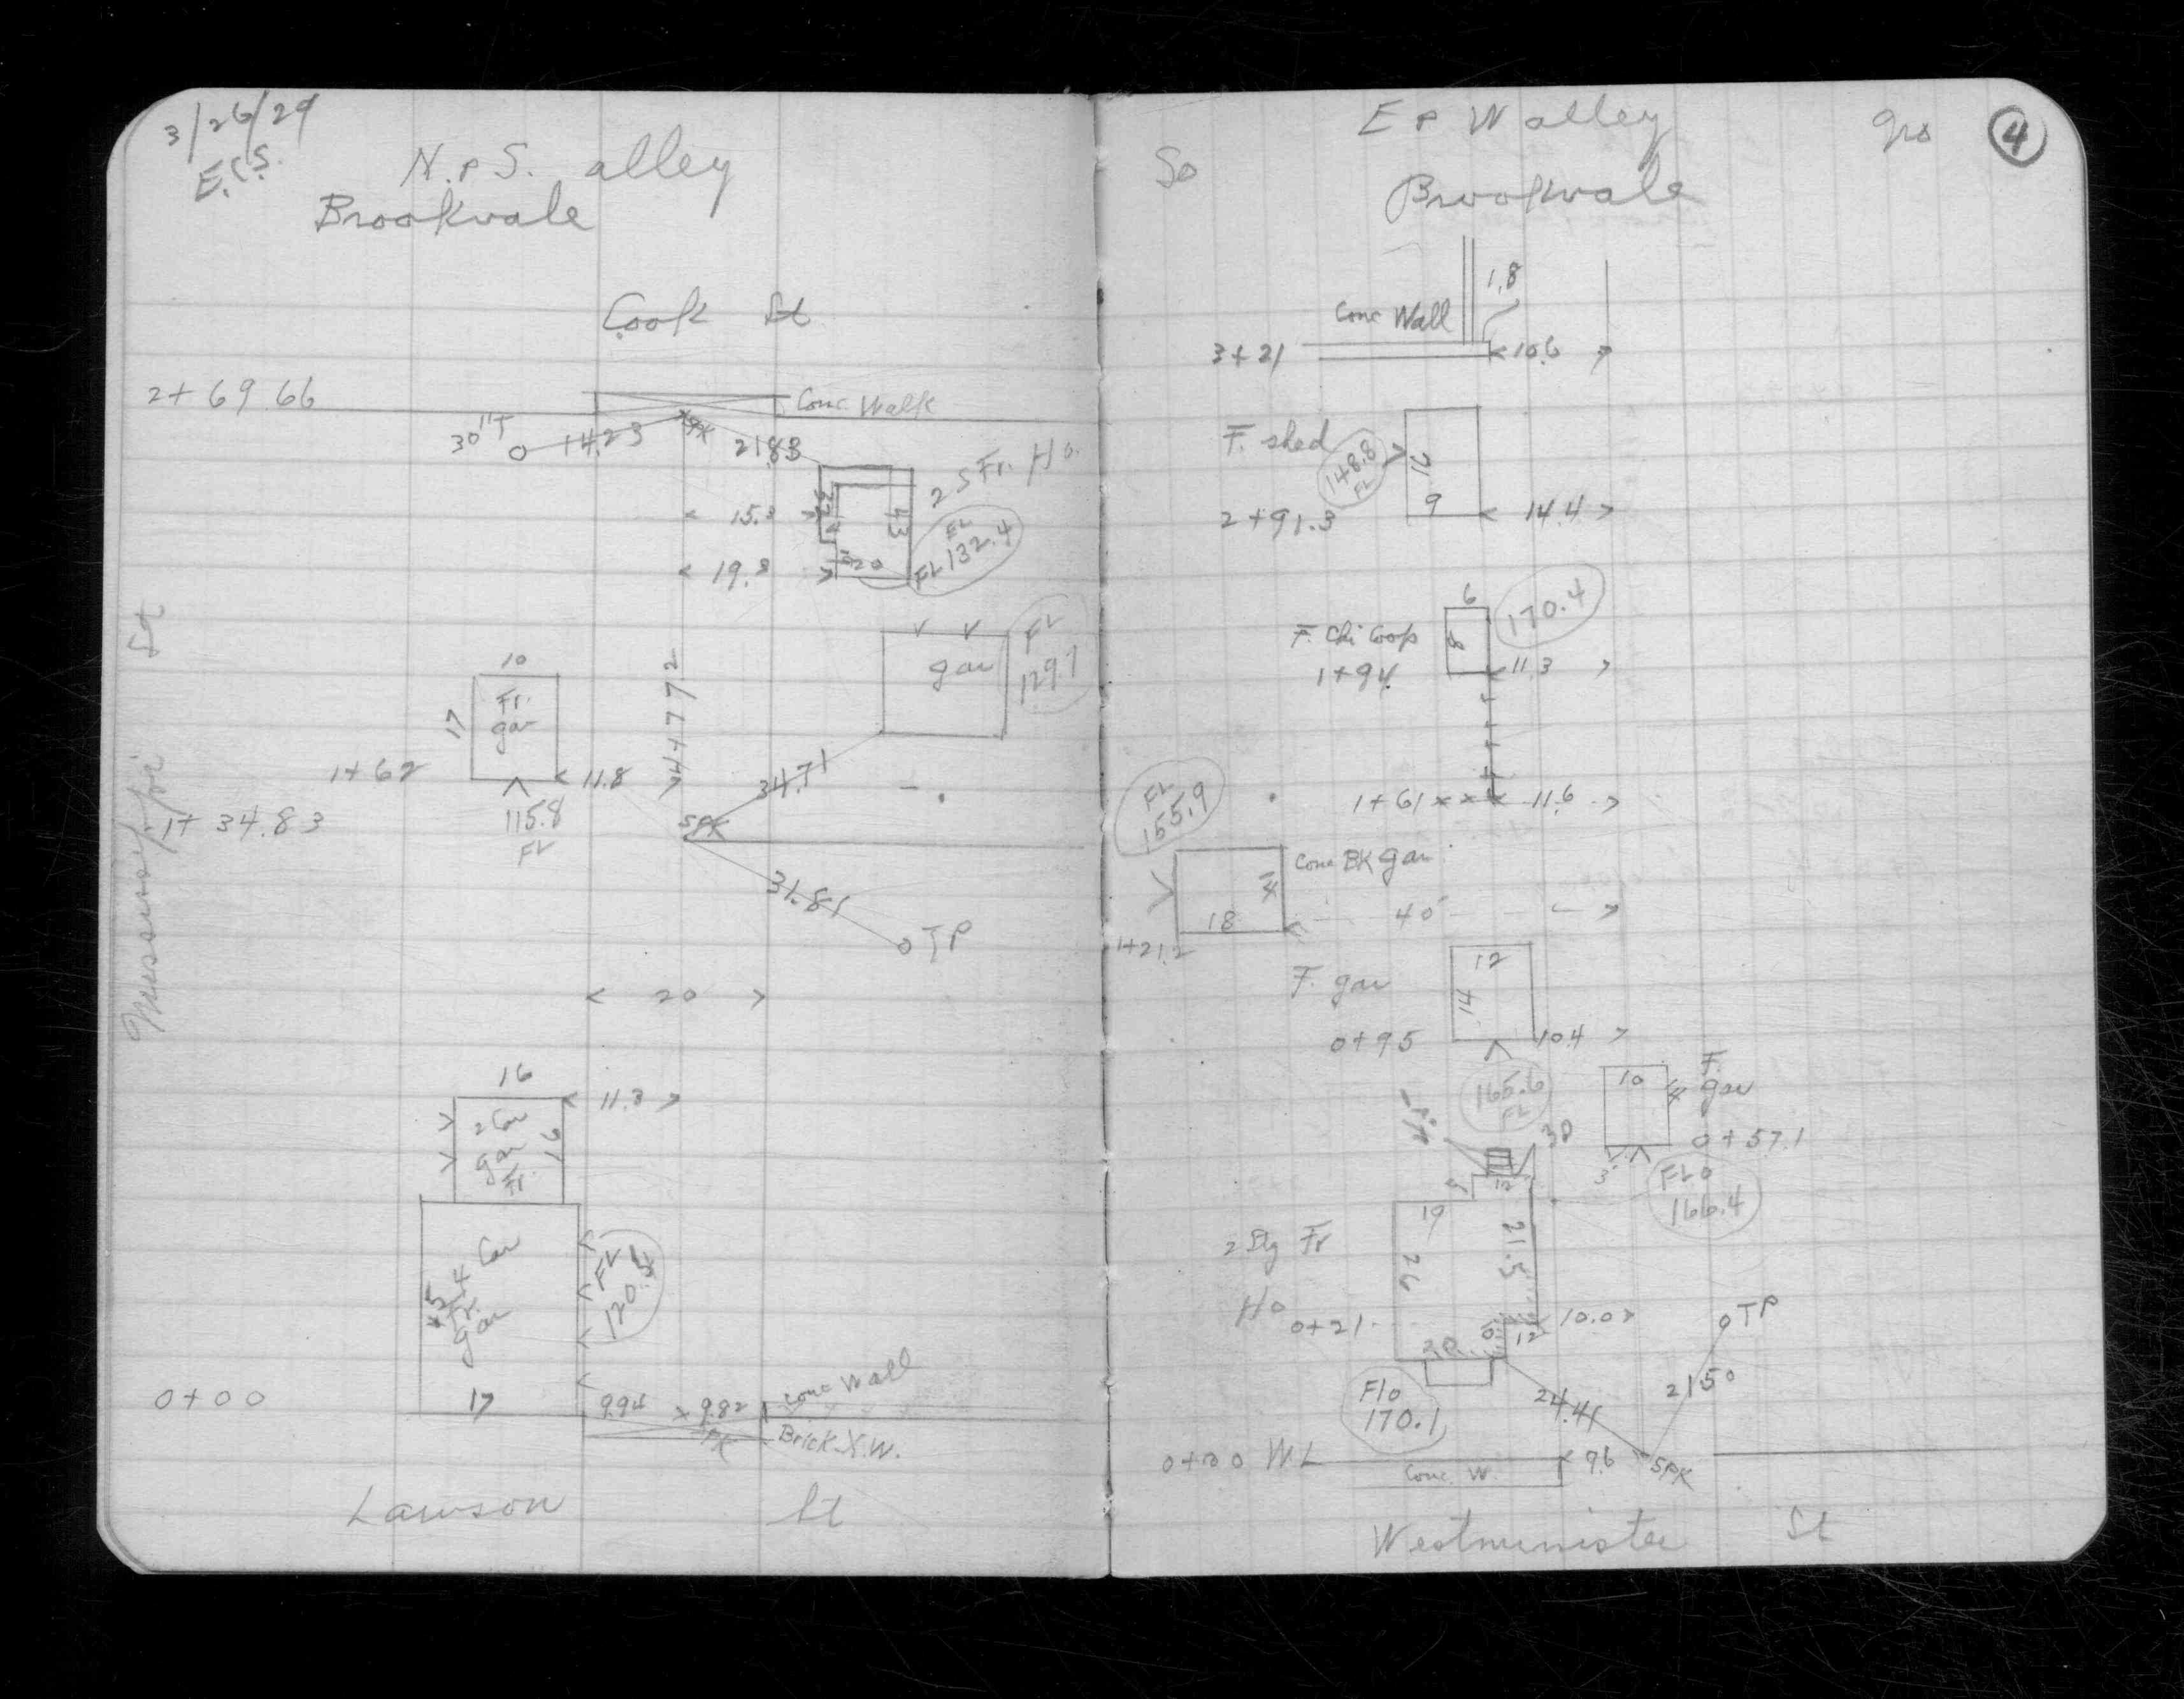 3/26/29
E.C.S.
N. & S. alley
Brookvale
Cook St
2+69.66
Conc. Walk
30"T
14.23
SPK
21.83
2 S Fr. Ho.
15.3
43
FL 132.4
19.8
20
10
Fr.
gar
17
gar
FL
129.7
1+62
11.8
34.71
115.8
FL
Mississippi St
1+34.83
SPK
31.81
TP
20
16
11.3
2 Car
gar
Fr.
16
4 Car
gar
FL
120.5
0+00
17
9.94
9.82
SPK
Conc Wall
Brick X.W.
Lawson St
So
E & W alley
Brookvale
4
1.8
Conc Wall
3+21
10.6
F. shed
148.8
FL
12
9
2+91.3
14.4
6
170.4
F. Chi Coop
8
1+94
11.3
FL
155.9
1+61
11.6
Conc BK gar.
14
18
40
1+21.2
12
F. gar
14
0+95
10.4
165.6
FL
10
14
F.
gar
0+57.1
3
Flo
166.4
12
19
21.5
2 Stg Fr
26
Ho
0+21
10
12
10.0
TP
Flo
170.1
24.41
21.50
0+00 W.L
9.6
SPK
Conc. W.
Westminister St